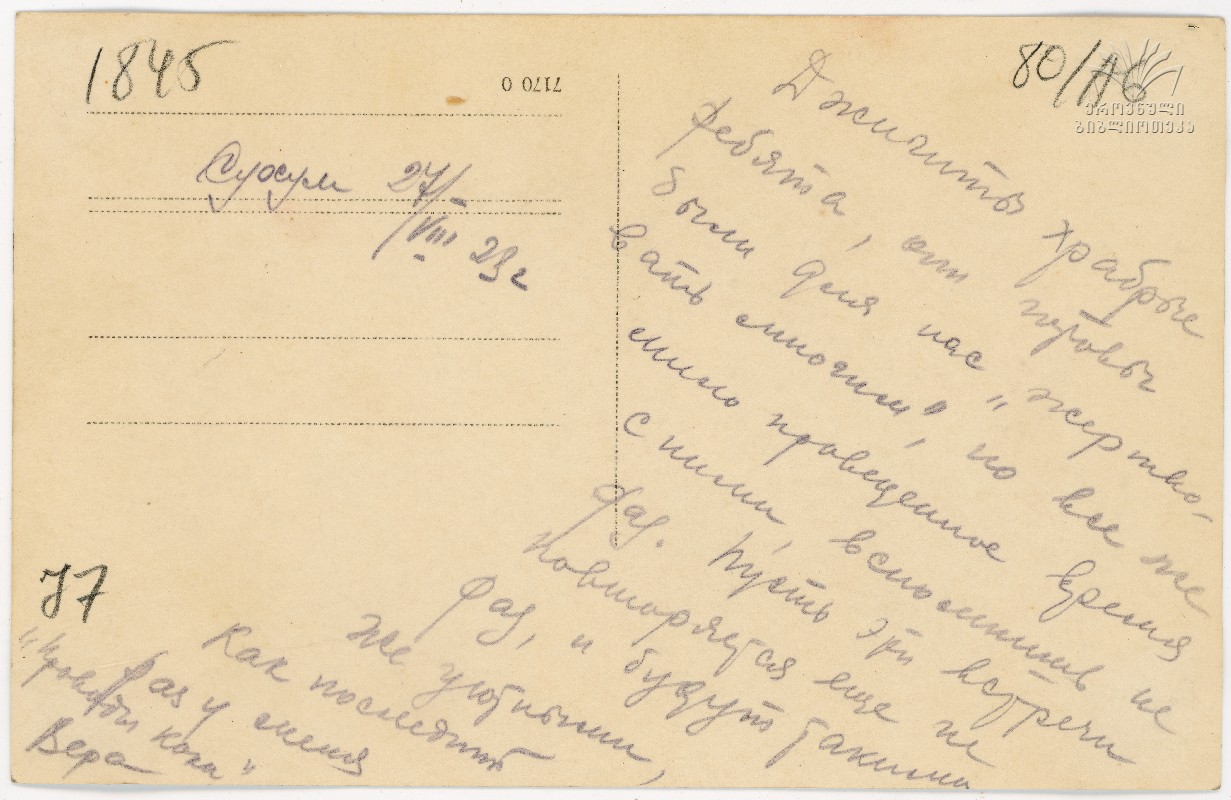 1845
7170 0
80/А6
ეროვნული
ბიბლიოთეკა
Сухум 27/VIII 23 г
Джигиты храбрые
ребята, они готовы
были для нас „жертво-
вать многим", но все же
мило проведенное время
с ними, вспомнишь не
раз. Пусть эти встречи
повторяется еще не
раз, и будут такими
же уютными,
как последний
раз у меня
"
Вера
77